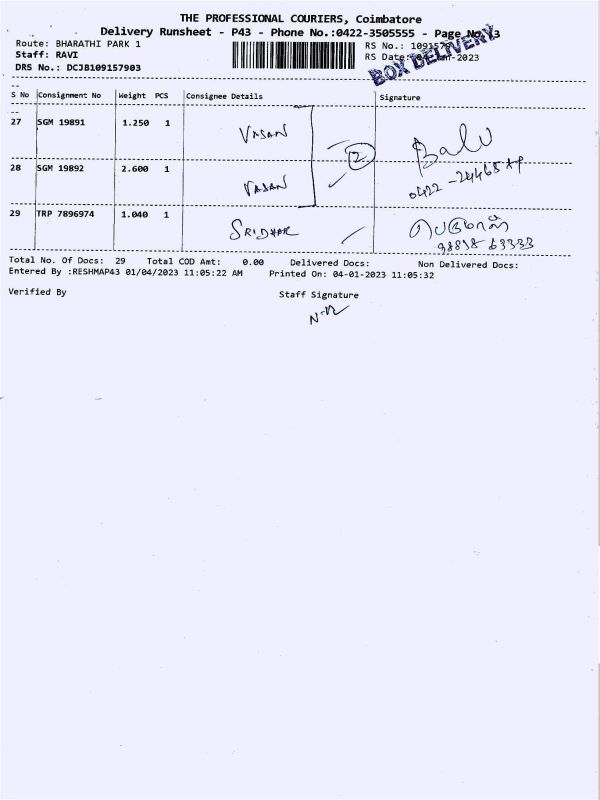 THE PROFESSIONAL COURIERS, Coimbatore
Delivery Runsheet - P43 - Phone No.:0422-3505555 - Page No. 3
Route: BHARATHI PARK 1
RS No.:
Staff: RAVI
RS Date: 04-Jan-2023
DRS No.: DCJB109157903
BOX DELIVERY
S No Consignment No Weight PCS Consignee Details Signature
27 SGM 19891 1.250 1 VASAN Balu
28 SGM 19892 2.600 1 VASAN 2
29 TRP 7896974 1.040 1 SRIDHAR
Total No. Of Docs: 29 Total COD Amt: 0.00 Delivered Docs: Non Delivered Docs:
Entered By :RESHMAP43 01/04/2023 11:05:22 AM Printed On: 04-01-2023 11:05:32
Verified By Staff Signature